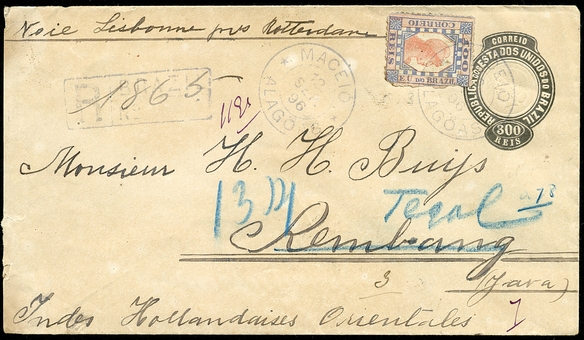 Voie Lisbonne prs Rotterdam
CORREIO
REIS
E.U. DO BRAZIL
CORREIO
REPUBLICA DOS ESTADOS UNIDOS DO BRAZIL
300
REIS
R
1865
MACEIO
12
96
ALAGOAS
MACEIO
ALAGOAS
1182
Monsieur H. H. Buijs
Tegal
Rembang
3
(Java)
Indes Hollandaises Orientales
1